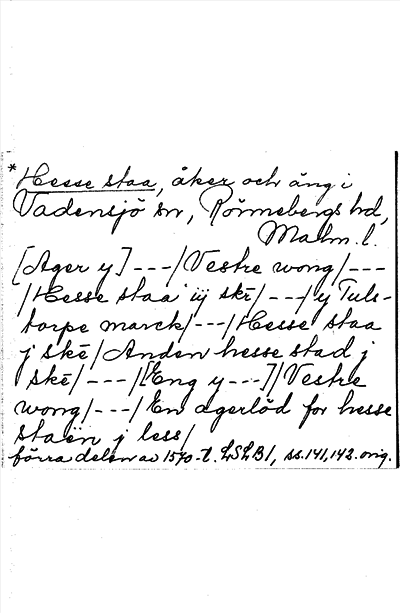 * Hesse staa, åker och äng i
Vadensjö sn, Rönnebergs hd,
Malm. l.
[Ager y] ---/Vestre wong/---
/Hesse staa iij skē/---/y Tuls-
torpe marck/---/Hesse staa
j skē/Anden hesse stad j
skē/---/[Eng y---]/Vestre
wong/---/En agerlöd for hesse
staën j less/
förra delen av 1570-t. LSLB1, ss. 141, 142. orig.